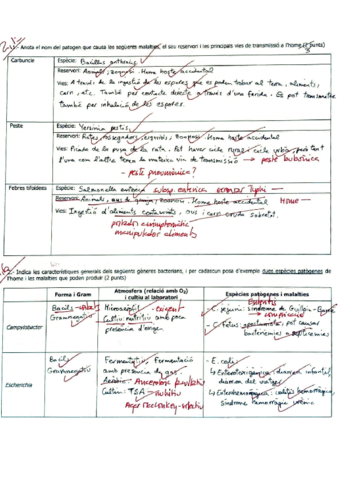 Anota el nom del patogen que causa les següents malalties, el seu reservori i les principals vies de transmissió a l'home (2 punts)
Carbuncle
Espècie: Bacillus anthracis
Reservori: Home hoste accidental
Vies: A través de la ingestió de les espores que es poden trobar al terra, aliments,
carn, etc. També per contacte directe a través d'una ferida. Es pot transmetre
també per inhalació de les espores.
Peste
Espècie: Yersinia pestis
Reservori: Rates, Home hoste accidental
Vies: Picada de la puça de la rata. Pot haver cicle rural i cicle urbà, per tant
d'una com l'altre tenen la mateixa via de transmissió → peste bubònica
→ peste pneumònica?
Febres tifoidees
Espècie: Salmonella enterica subsp. enterica serovar Typhi
Reservori: Home hoste accidental Home
Vies: Ingestió d'aliments contaminats, ous i carn crua sobretot.
portador asimptomàtic
manipulador aliments
Indica les característiques generals dels següents gèneres bacterians, i per cadascun posa d'exemple dues espècies patògenes de
l'home i les malalties que poden produir (2 punts)
Forma i Gram
Atmosfera (relació amb O2)
i cultiu al laboratori
Espècies patògenes i malalties
Campylobacter
Bacils
Gramnegatiu
Microaeròfil exigent
Cultiu: nutritiu amb poca
presència d'oxigen
Enteritis
C. jejuni: síndrome de Guillain-Barré
→ complicació
- C. fetus: oportunista, pot causar
bacterièmies o septicèmies
Escherichia
Bacils
Gramnegatiu
Fermentatiu, Fermentació
amb presència de gas
Aerobi: Anaerobi facultatiu
Cultiu: TSA → nutritiu
Agar MacConkey → selectiu
- E. coli
↳ Enterotoxigènica: diarrea infantil,
diarrea del viatger
↳ Enterohemorràgica: colitis hemorràgica,
síndrome hemolític urèmic